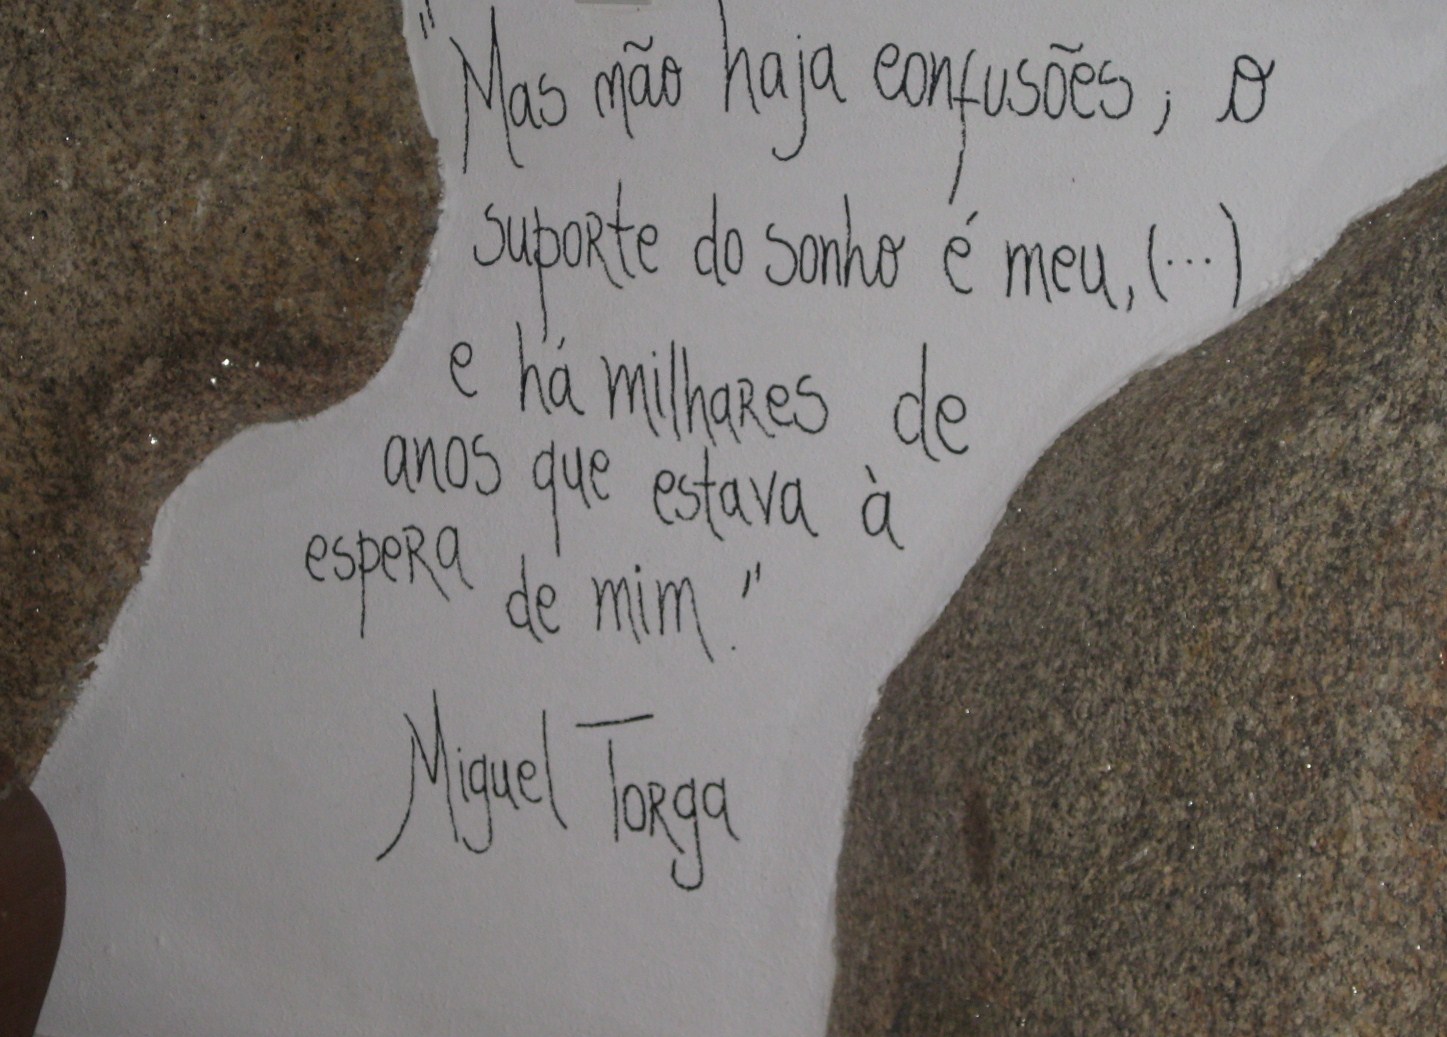 "Mas não haja confusões, o
suporte do sonho é meu, (...)
e há milhares de
anos que estava à
espera de mim."
Miguel Torga